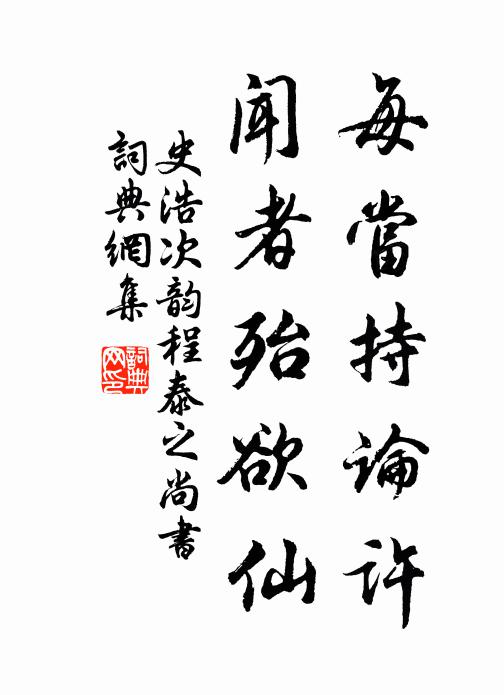 每當持論許
聞者殆欲仙
史浩次韵程泰之尚書
詞典網集
詞典
网印